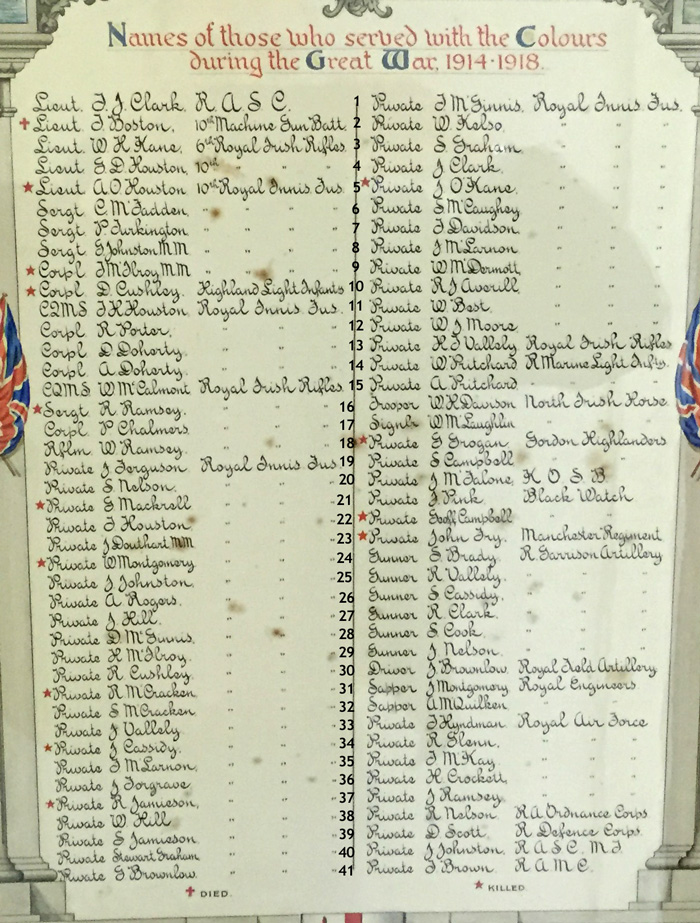 Names of those who served with the Colours
during the Great War, 1914·1918.
Lieut. F. J. Clark. R. A. S. C.
✝ Lieut. F. Boston, 10th Machine Gun Batt.
Lieut. W. H. Kane, 6th Royal Irish Rifles.
Lieut. G. D. Houston, 10th " "
★ Lieut. A. O. Houston 10th Royal Innis Fus.
Sergt. C. McFadden, " " "
Sergt. P. Turkington. " " "
Sergt. G. Johnston M M " " "
★ Corpl. F. McIlroy, M M " " "
★ Corpl. D. Cushley. Highland Light Infants
CQMS F. H. Houston, Royal Innis Fus.
Corpl. R. Porter, " " "
Corpl. D. Doherty. " " "
Corpl. A. Doherty. " " "
CQMS W. McCalmont Royal Irish Rifles.
★ Sergt. R. Ramsey. " " "
Corpl. P. Chalmers. " " "
Rflm. W. Ramsey. " " "
Private J. Ferguson, Royal Innis Fus.
Private S. Nelson. " " "
★ Private G. Mackrell " " "
Private F. Houston " " "
Private J. Douthart MM " " "
★ Private W. Montgomery. " " "
Private J. Johnston. " " "
Private A. Rogers. " " "
Private J. Hill. " " "
Private D. McGinnis. " " "
Private H. McIlroy. " " "
Private R. Cushley. " " "
★ Private R. McCracken " " "
Private S. McCracken " " "
Private J. Vallely " " "
★ Private J. Cassidy. " " "
Private F. McLarnon. " " "
Private J. Torgrave. " " "
★ Private R. Jamieson, " " "
Private W. Hill. " " "
Private S. Jamieson. " " "
Private Stewart Graham. " " "
Private G. Brownlow. " " "
✝ DIED.
1 Private F. McGinnis. Royal Innis Fus.
2 Private W. Kelso. " " "
3 Private S. Graham. " " "
4 Private J. Clark. " " "
5 ★ Private J. O'Kane. " " "
6 Private S. McCaughey " " "
7 Private F. Davidson. " " "
8 Private J. McLarnon. " " "
9 Private W. McDermott, " " "
10 Private R. J. Averill. " " "
11 Private W. Best. " " "
12 Private W. J. Moore " " "
13 Private H. F. Vallely Royal Irish Rifles
14 Private W. Pritchard R. Marine Light Infty.
15 Private A. Pritchard " " "
16 Trooper W. H. Davison North Irish Horse
17 Signlr. W. McLaughlin " " "
18 ★ Private G. Grogan Gordon Highlanders
19 Private S. Campbell " "
20 Private J. McFalone, K. O. S. B
21 Private J. Pink Black Watch
22 ★ Private Geoff. Campbell " "
23 ★ Private John Fry. Manchester Regiment
24 Gunner S. Brady. R. Garrison Artillery
25 Gunner R. Vallely. " " "
26 Gunner S. Cassidy. " " "
27 Gunner R. Clark. " " "
28 Gunner S. Cook. " " "
29 Gunner J. Nelson. " " "
30 Driver J. Brownlow. Royal Field Artillery
31 Sapper J. Montgomery Royal Engineers
32 Sapper A. McQuilken " "
33 Private F. Hyndman Royal Air Force
34 Private R. Glenn. " " "
35 Private F. McKay " " "
36 Private H. Crockett. " " "
37 Private J. Ramsey. " " "
38 Private R. Nelson R. A. Ordnance Corps
39 Private D. Scott. R. Defence Corps.
40 Private J. Johnston. R. A. S. C. M. T.
41 Private F. Brown. R. A. M. C.
★ KILLED.